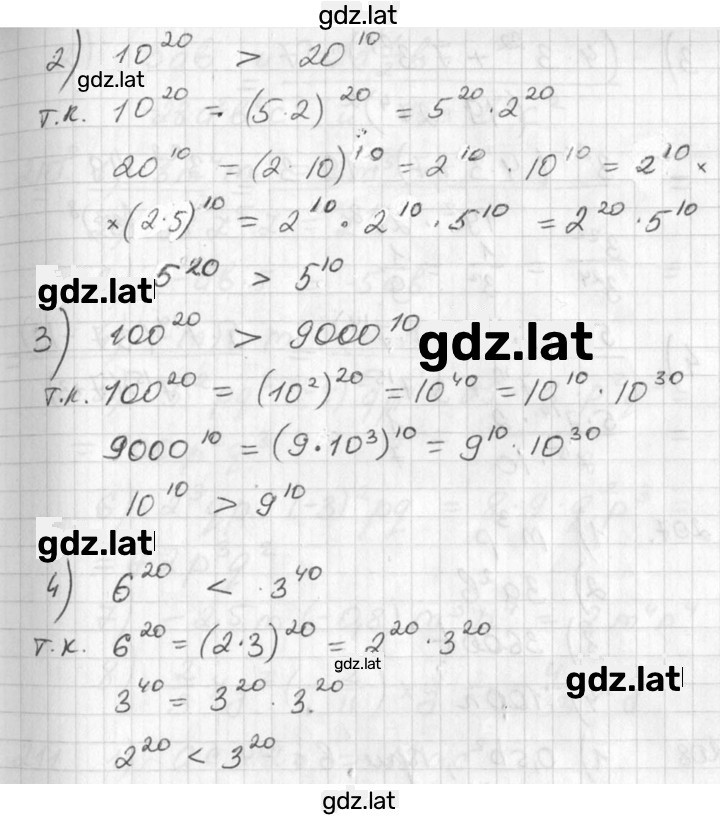 gdz.lat
2) 10²⁰ > 20¹⁰
gdz.lat
т.к. 10²⁰ = (5·2)²⁰ = 5²⁰·2²⁰
20¹⁰ = (2·10)¹⁰ = 2¹⁰·10¹⁰ = 2¹⁰ ×
×(2·5)¹⁰ = 2¹⁰·2¹⁰·5¹⁰ = 2²⁰·5¹⁰
5²⁰ > 5¹⁰
gdz.lat
3) 100²⁰ > 9000¹⁰
gdz.lat
т.к. 100²⁰ = (10²)²⁰ = 10⁴⁰ = 10¹⁰·10³⁰
9000¹⁰ = (9·10³)¹⁰ = 9¹⁰·10³⁰
10¹⁰ > 9¹⁰
gdz.lat
4) 6²⁰ < 3⁴⁰
т.к. 6²⁰ = (2·3)²⁰ = 2²⁰·3²⁰
gdz.lat
gdz.lat
3⁴⁰ = 3²⁰·3²⁰
2²⁰ < 3²⁰
gdz.lat